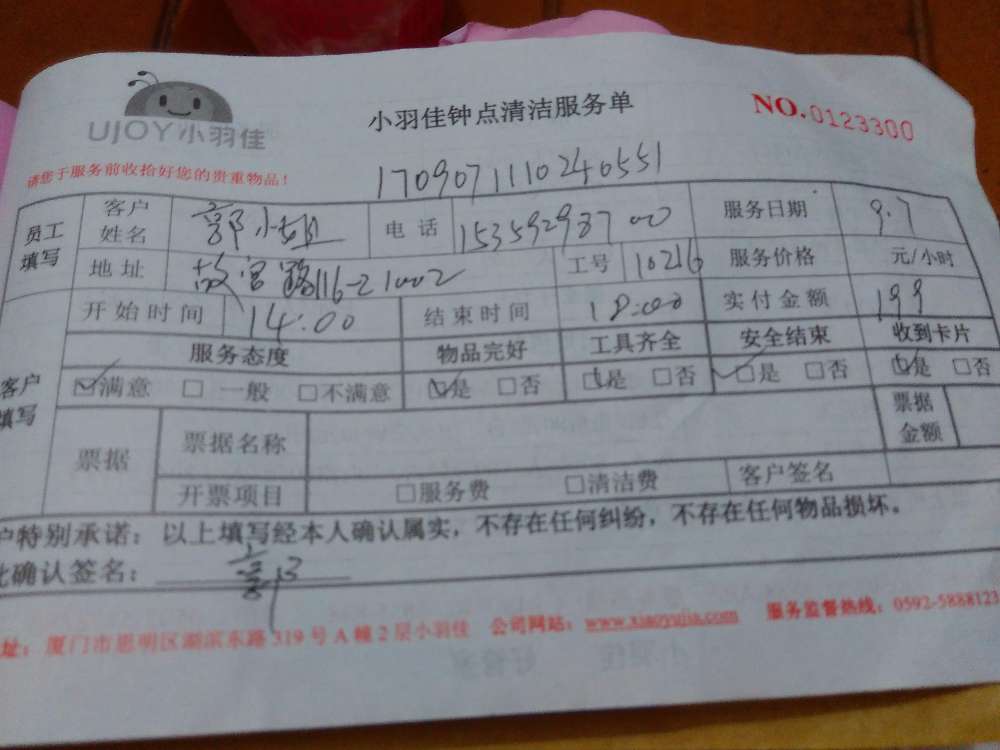 UJOY小羽佳
小羽佳钟点清洁服务单
NO.0123300
请您于服务前收拾好您的贵重物品!
1709071110240551
员工填写 客户姓名 郭小姐 电话 15359293700 服务日期 9.7
地址 故宫路116-21002 工号 10216 服务价格 元/小时
开始时间 14:00 结束时间 18:00 实付金额 199
客户填写 服务态度 物品完好 工具齐全 安全结束 收到卡片
☑满意 □一般 □不满意 ☑是 □否 ☑是 □否 ☑是 □否 ☑是 □否
票据 票据名称 票据金额
开票项目 □服务费 □清洁费 客户签名
户特别承诺:以上填写经本人确认属实,不存在任何纠纷,不存在任何物品损坏。
此确认签名: 郭
址:厦门市思明区湖滨东路319号A幢2层小羽佳 公司网站:www.xiaoyujia.com 服务监督热线:0592-5888123